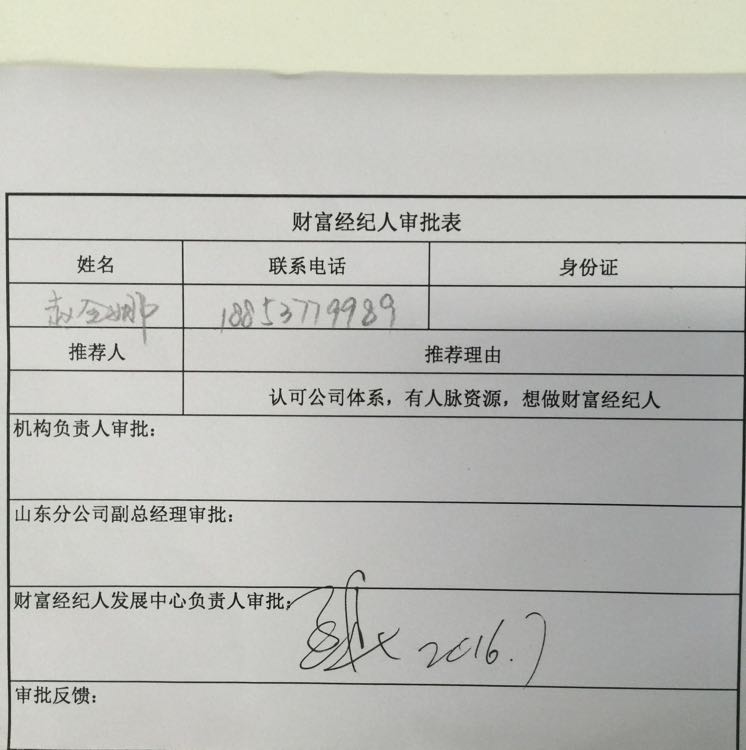 财富经纪人审批表
姓名 联系电话 身份证
赵全娜 18853779989
推荐人 推荐理由
认可公司体系，有人脉资源，想做财富经纪人
机构负责人审批：
山东分公司副总经理审批：
财富经纪人发展中心负责人审批：
2016.7
审批反馈：